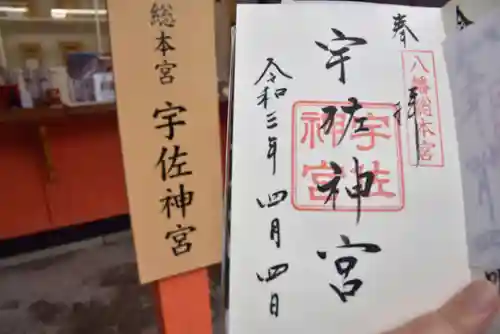 総本宮
宇佐神宮
奉拝
八幡総本宮
宇佐神宮
宇佐
神宮
令和三年四月四日